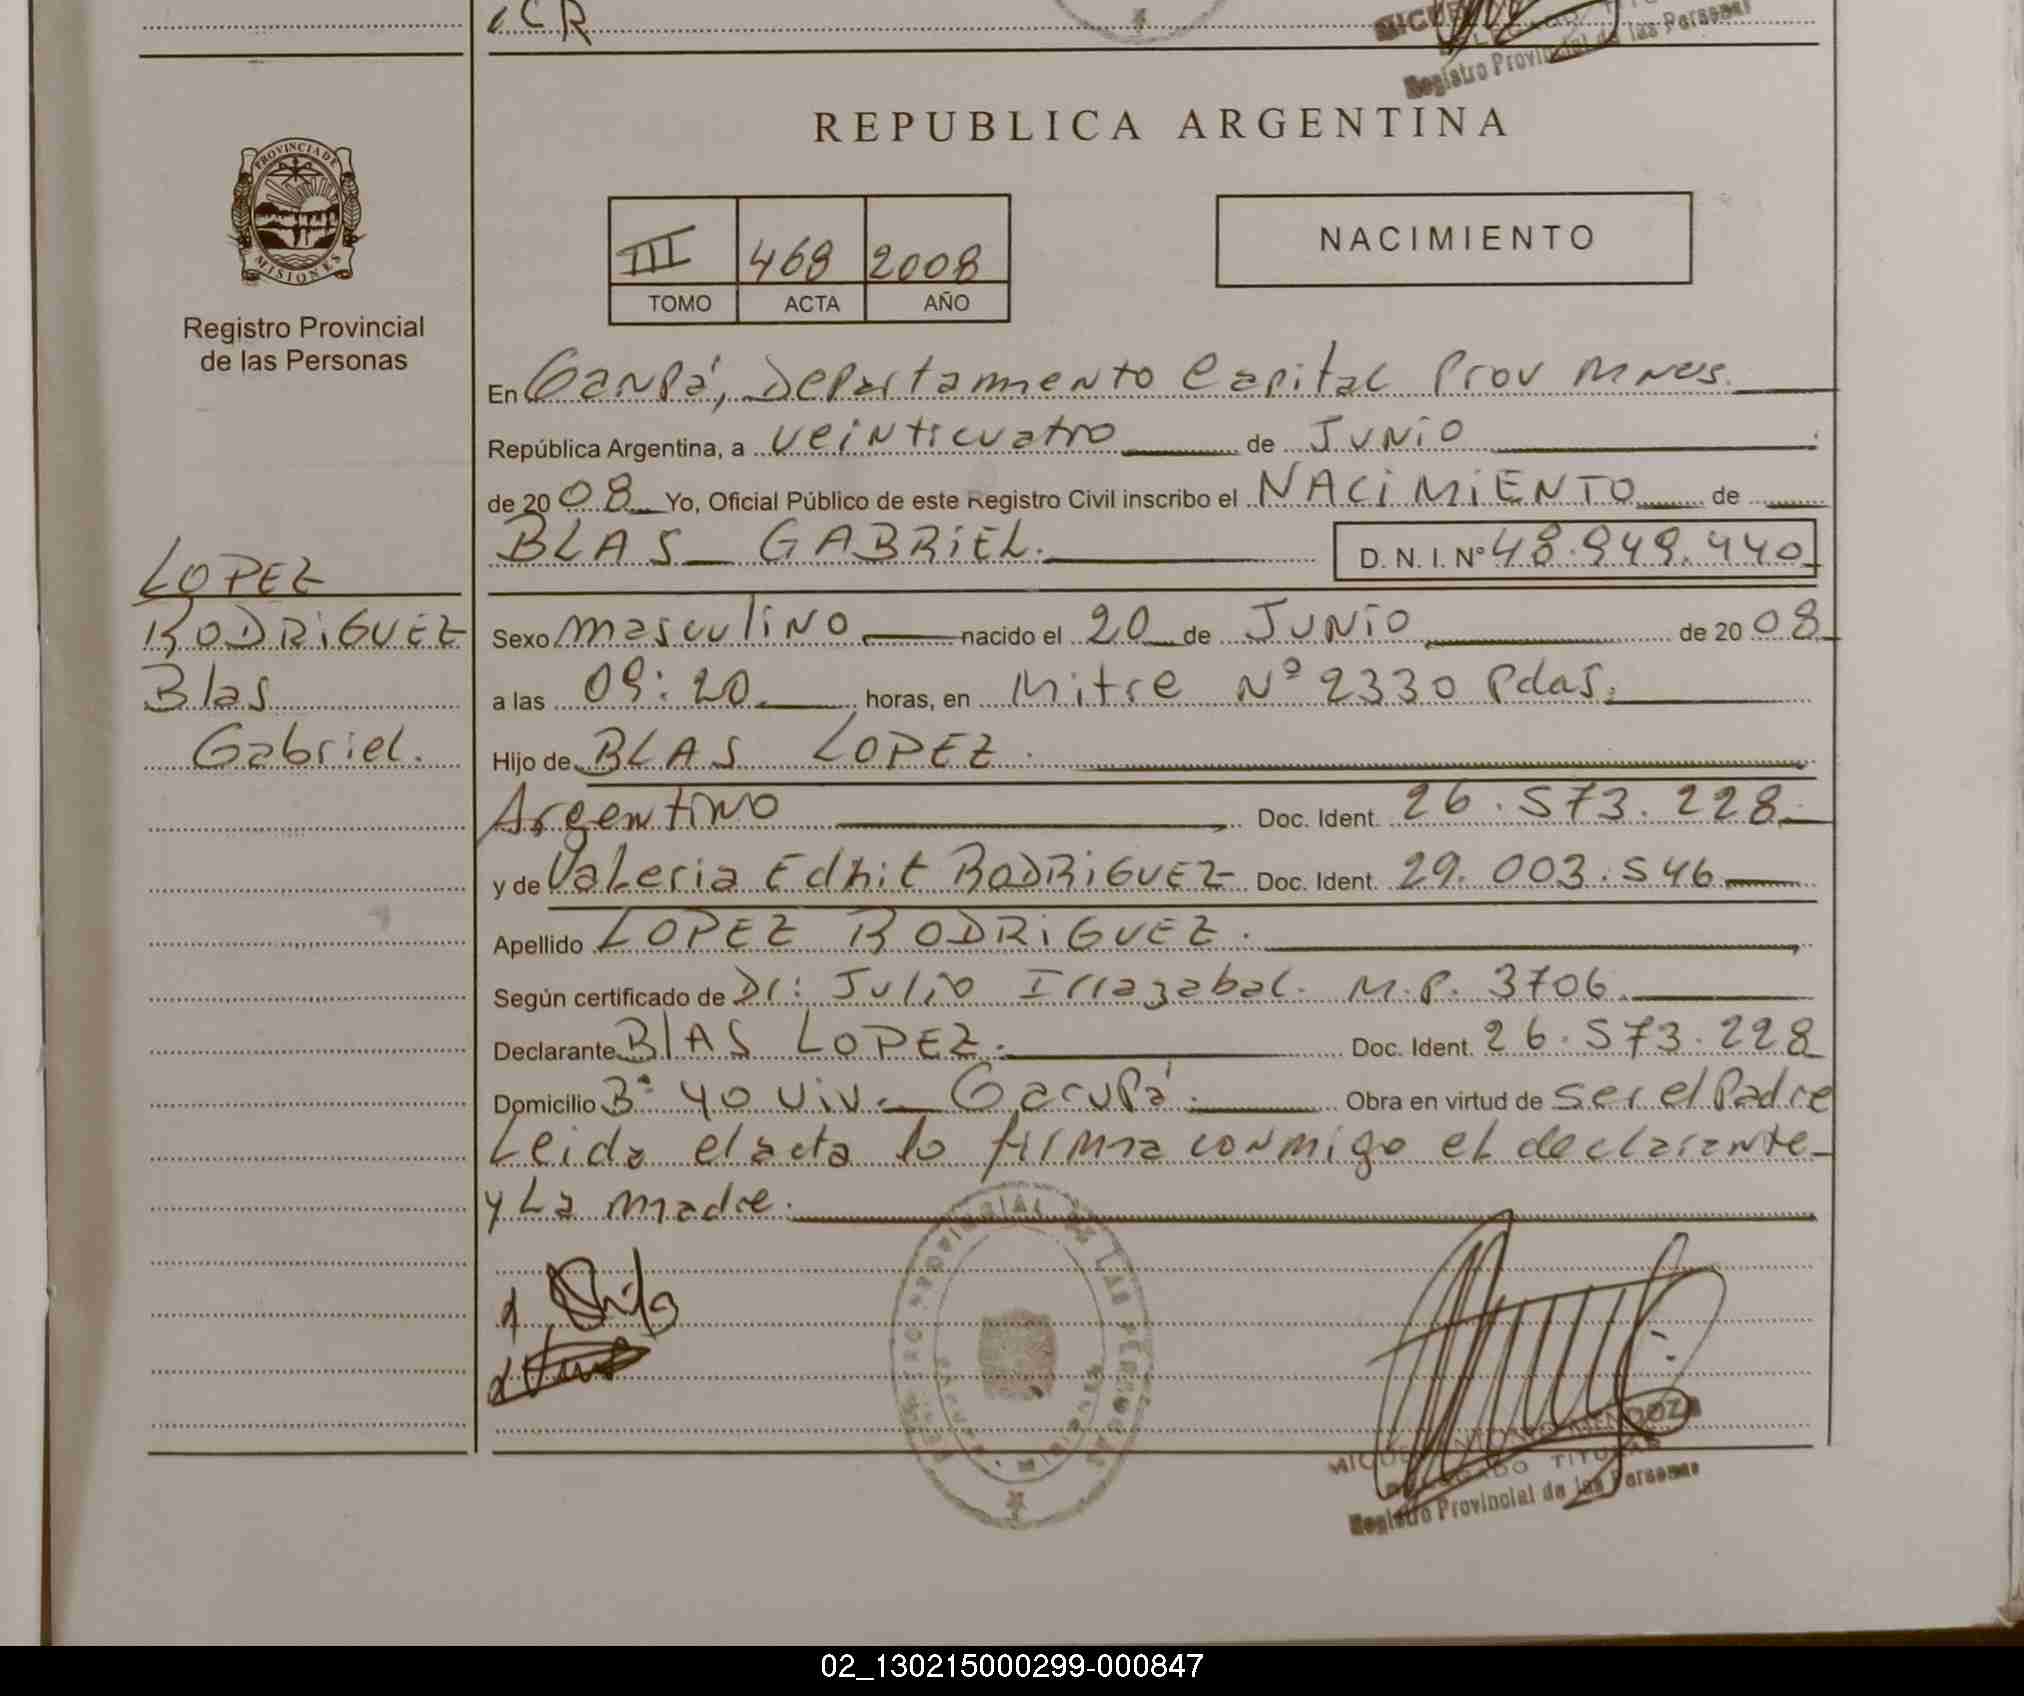 CR
Registro Provincial de las Personas
PROVINCIA DE
MISIONES
Registro Provincial
de las Personas
REPUBLICA ARGENTINA
III 468 2008
TOMO ACTA AÑO
NACIMIENTO
En Garupá, Departamento Capital Prov Mnes.
República Argentina, a veinticuatro de Junio
de 2008 Yo, Oficial Público de este Registro Civil inscribo el NACIMIENTO de
BLAS GABRIEL. D. N. I. Nº 48.949.440
LOPEZ
RODRIGUEZ
Blas
Gabriel.
Sexo masculino nacido el 20 de JUNIO de 2008
a las 09:20 horas, en Mitre Nº 2330 Pdas.
Hijo de BLAS LOPEZ.
Argentino Doc. Ident. 26.573.228
y de Valeria Edhit RODRIGUEZ Doc. Ident. 29.003.546
Apellido LOPEZ RODRIGUEZ.
Según certificado de Dr: Julio Irrazabal. M.P. 3706
Declarante BlAS LOPEZ. Doc. Ident. 26.573.228
Domicilio Bº 40 viv. Garupá. Obra en virtud de ser el Padre
Leida el acta lo firma conmigo el declarante
y La madre.
REGISTRO PROVINCIAL DE LAS PERSONAS
MISIONES
MENDOZA
DELEGADO TITULAR
Registro Provincial de las Personas
02_130215000299-000847